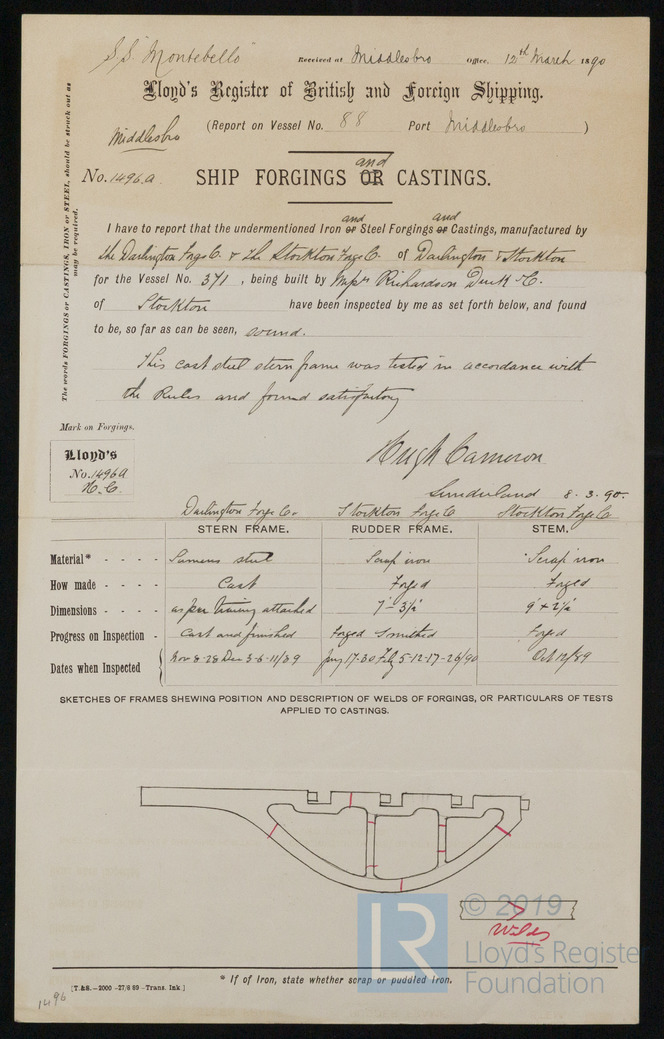 S.S. "Montebello"
Received at Middlesbro Office, 12th March 1890
Lloyd's Register of British and Foreign Shipping.
(Report on Vessel No. 88 Port Middlesbro )
Middlesbro
No. 1496a
and
SHIP FORGINGS OR CASTINGS.
The words FORGINGS or CASTINGS, IRON or STEEL, should be struck out as
may be required.
and and
I have to report that the undermentioned Iron or Steel Forgings or Castings, manufactured by
the Darlington Forge Co. & The Stockton Forge Co. of Darlington & Stockton
for the Vessel No. 371, being built by Messrs Richardson Duck & Co.
of Stockton have been inspected by me as set forth below, and found
to be, so far as can be seen, sound.
This cast steel stern frame was tested in accordance with
the Rules and found satisfactory
Mark on Forgings.
Lloyd's
No. 1496a
H.C.
Hugh Cameron
Sunderland 8.3.90.
Darlington Forge Co. Stockton Forge Co Stockton Forge Co
STERN FRAME. RUDDER FRAME. STEM.
Material* - - - - Siemens steel Scrap iron Scrap iron
How made - - - - Cast Forged Forged
Dimensions - - - - as per tracing attached 7" - 3½" 9 x 2½
Progress on Inspection - Cast and finished Forged & finished Forged
Dates when Inspected Nov 8-28 Dec 3-6-11/89 Jany 17-30 Feby 5-12-17-26/90 Oct 12/89
SKETCHES OF FRAMES SHEWING POSITION AND DESCRIPTION OF WELDS OF FORGINGS, OR PARTICULARS OF TESTS
APPLIED TO CASTINGS.
Welds
© 2019
LR
Lloyd's Registe
Foundation
* If of Iron, state whether scrap or puddled iron.
[T.&S.—2000 -27/8 89 -Trans. Ink.]
1496